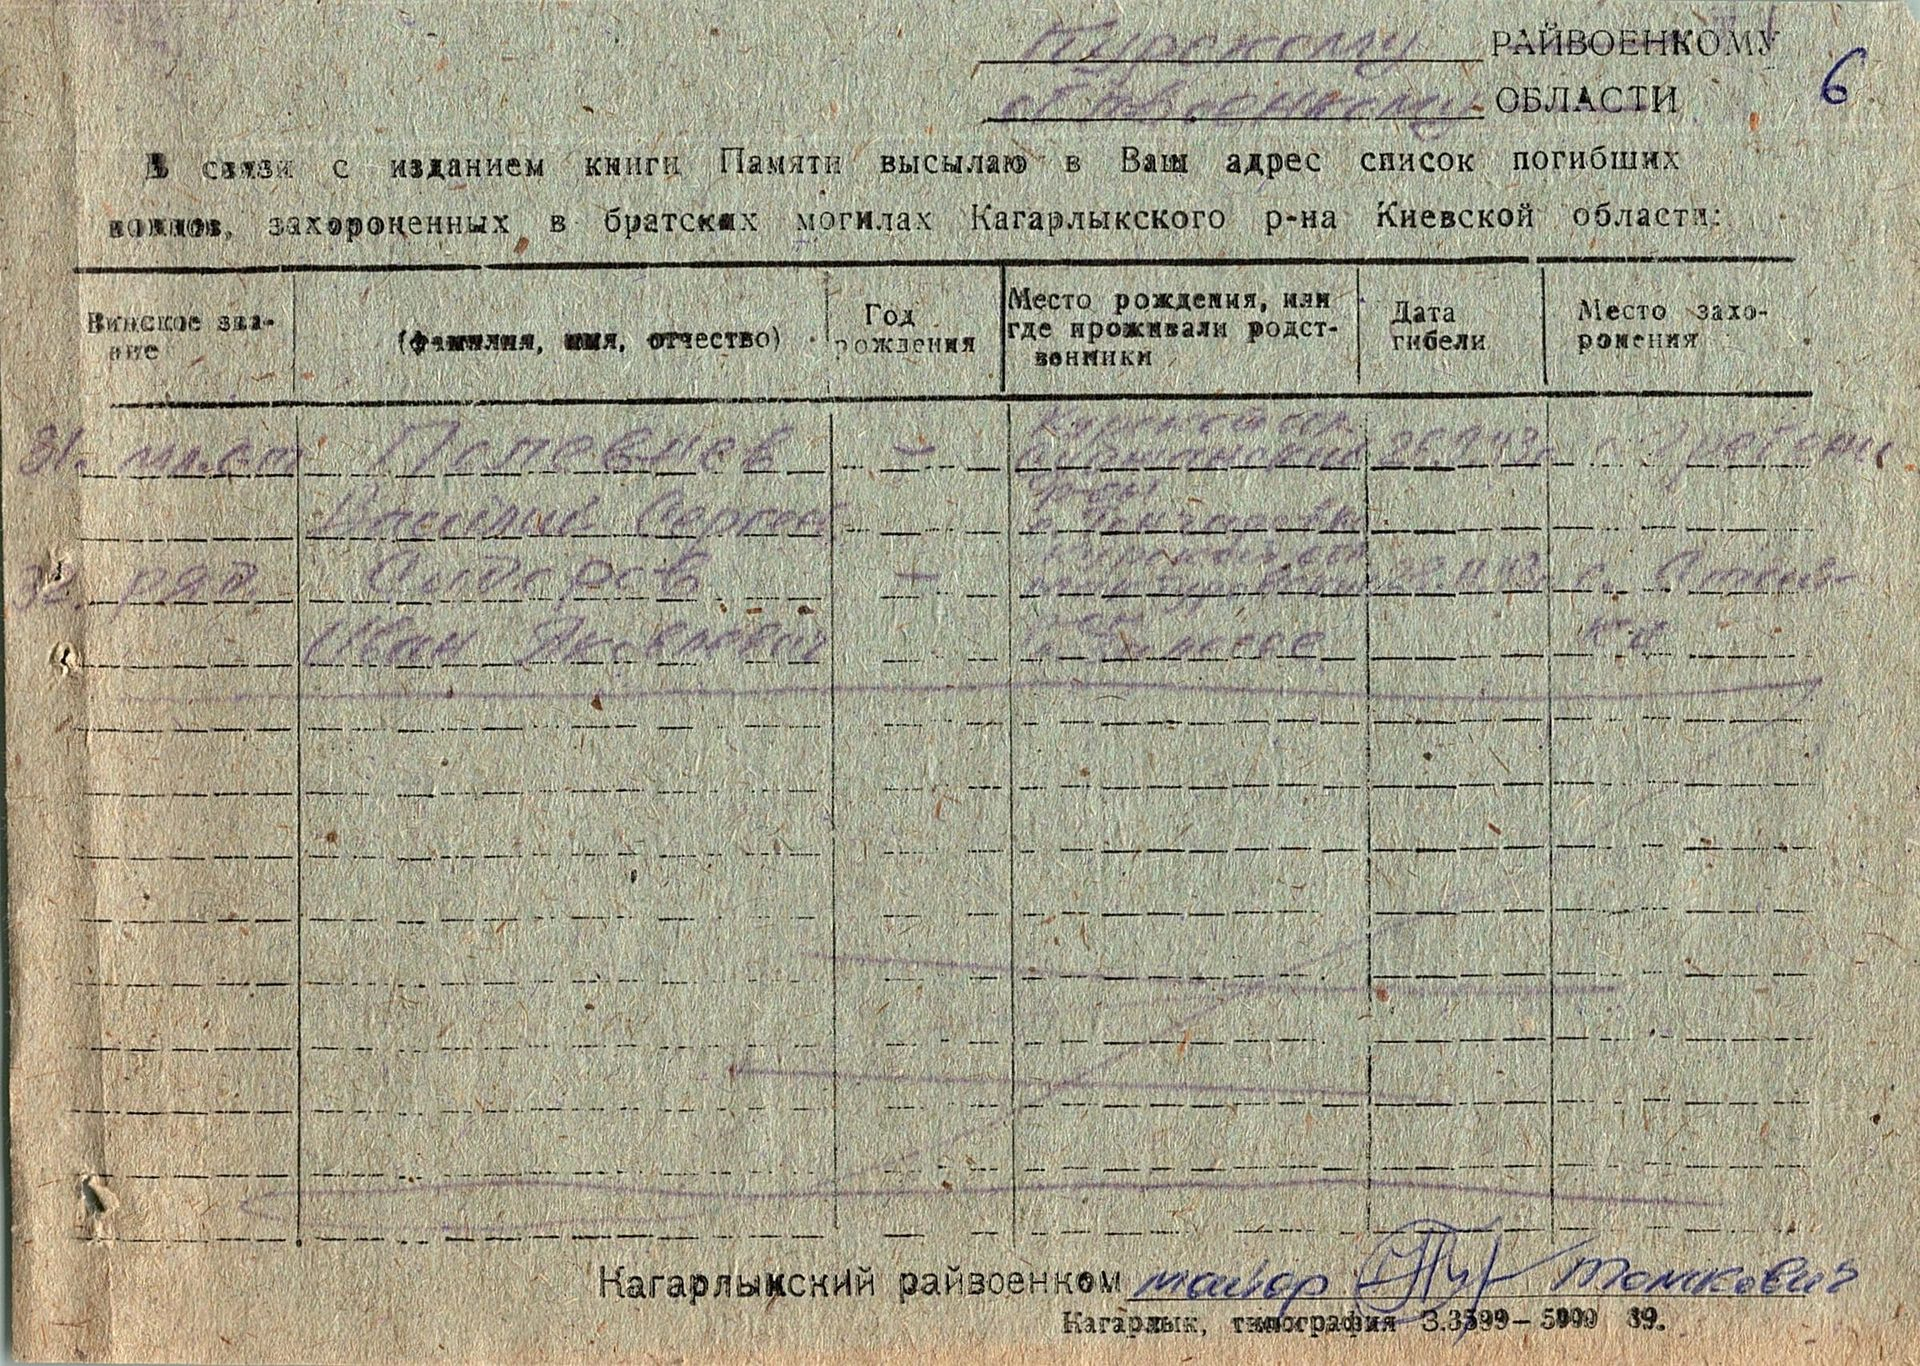 Курскому РАЙВОЕНКОМУ
облвоенкому ОБЛАСТИ
6
В связи с изданием книги Памяти высылаю в Ваш адрес список погибших
воинов, захороненных в братских могилах Кагарлыкского р-на Киевской области:
Винское зва-
ние
(фамилия, имя, отчество)
Год
рождения
Место рождения, или
где проживали родст-
венники
Дата
гибели
Место захо-
ронения
31. мл. с-т Полевцев — Курской обл 43г. с.
Василий Сергеев
р-он
32. ряд. Сидоров — Курской обл 43г. с.
Иван Яковлевич
р-он
ка
Кагарлыкский райвоенком майор Томкович
Кагарлык, типография З.3599—5000 89.